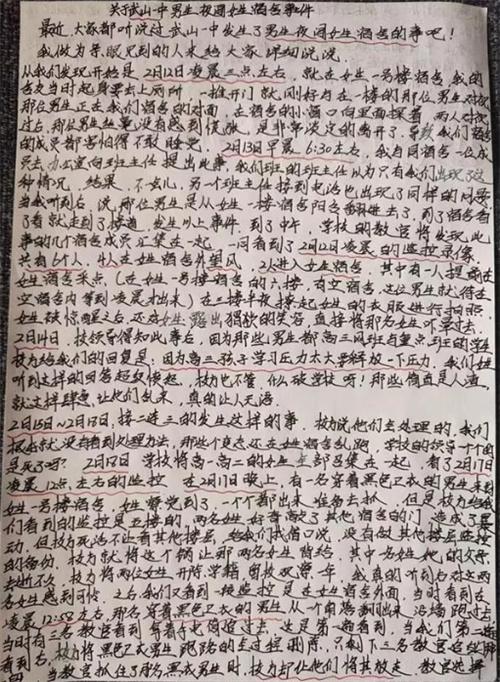 关于武山一中男生夜闯女生宿舍事件
最近,大家都听说过武山一中发生了男生夜闯女生宿舍的事吧!
我做为亲眼见到的人来给大家详细说说。
从我们发现开始是2月12日凌晨三点左右,就在女生一号楼宿舍,我的
舍友当时起身要去上厕所,一推开门就刚好与在一楼的那位男生对视
那位男生正在我们宿舍的对面,在宿舍的小窗口向里面探看,两人对视
过后,那位男生丝毫没有感到慌张,是非常淡定的离开了,导致我们宿舍
的成员都害怕得不敢睡觉。2月13日早晨6:30左右,我与同宿舍一位成
员去办公室向班主任提出此事,我们班的班主任以为只有我们出现了这
种情况,结果,不一会儿,另一个班主任接到电话也出现了同样的问题
当我听到后,说,那位男生是从女生一楼宿舍阳台翻进去了,到了宿舍看
了看就走到了楼道,发生以上事件,到了中午,学校的教官将发现此
事的几个宿舍成员汇集在一起,一同看到了2月12日凌晨的监控录像,
共有6个人,4人在女生宿舍外望风,2人进入女生宿舍,其中有一人提前在
女生宿舍来点(在女生一号楼宿舍的六楼,有空宿舍,这位男生就待在
空宿舍内等到凌晨才出来)在三楼半夜撩起女生的衣服进行拍照
女生被惊醒之后,还对女生露出猖狂的笑容,直接将那名女生吓晕过去。
2月14日,校领导得知此事后,因为那些男生都高三风班与重点班的学生
校方给我们的回复是,因为高三孩子学习压力太大要释放一下压力,我们女生
听到这样的回答超级愤怒,校方也不管,什么破学校呀!那些简直是人渣,
就这样肆意让他们乱来,真的让人无语。
2月15日~2月18日,接二连三的发生这样的事,校方说他们去处理的,我们
根本就没有看到处理方法,那些个变态还在女生宿舍乱跑,学校的领导一个个
是死了吗?2月17日,学校将高一高二的女生全部召集在一起,看了2月17日
凌晨12点左右的监控,在2月17日晚上,有一名穿着黑色卫衣的男生来到
女生一号楼宿舍,女生察觉到,一个个都出来准备去抓人,但是校方给我
们看到的监控是五楼的,两名女生好奇敲了其他宿舍的门,造成了暴
动,但校方死活不让看其他楼层,给我们找借口说,没有做其他楼层监控
的备份,校方就将这个锅让那两名女生背给,其中一名女生她的父母
去世不久,校方将两位女生开除学籍,留校观察一年,我真的听到后对这两
名女生感到可惜,之后我们又看到一段监控是在女生宿舍外面,当时看到在
凌晨12:58左右,那名穿着黑色卫衣的男生从一个角落翻出来沿墙跑过去
当时有三名教官看到,拿着手电筒追过去,这是第一遍看到,当我们第二遍
看到后,校方将黑色卫衣男生跑的全过程删除,只剩下三名教官
当教官抓住了那名黑衣男生时,校方却让他们将其放走,教官选择